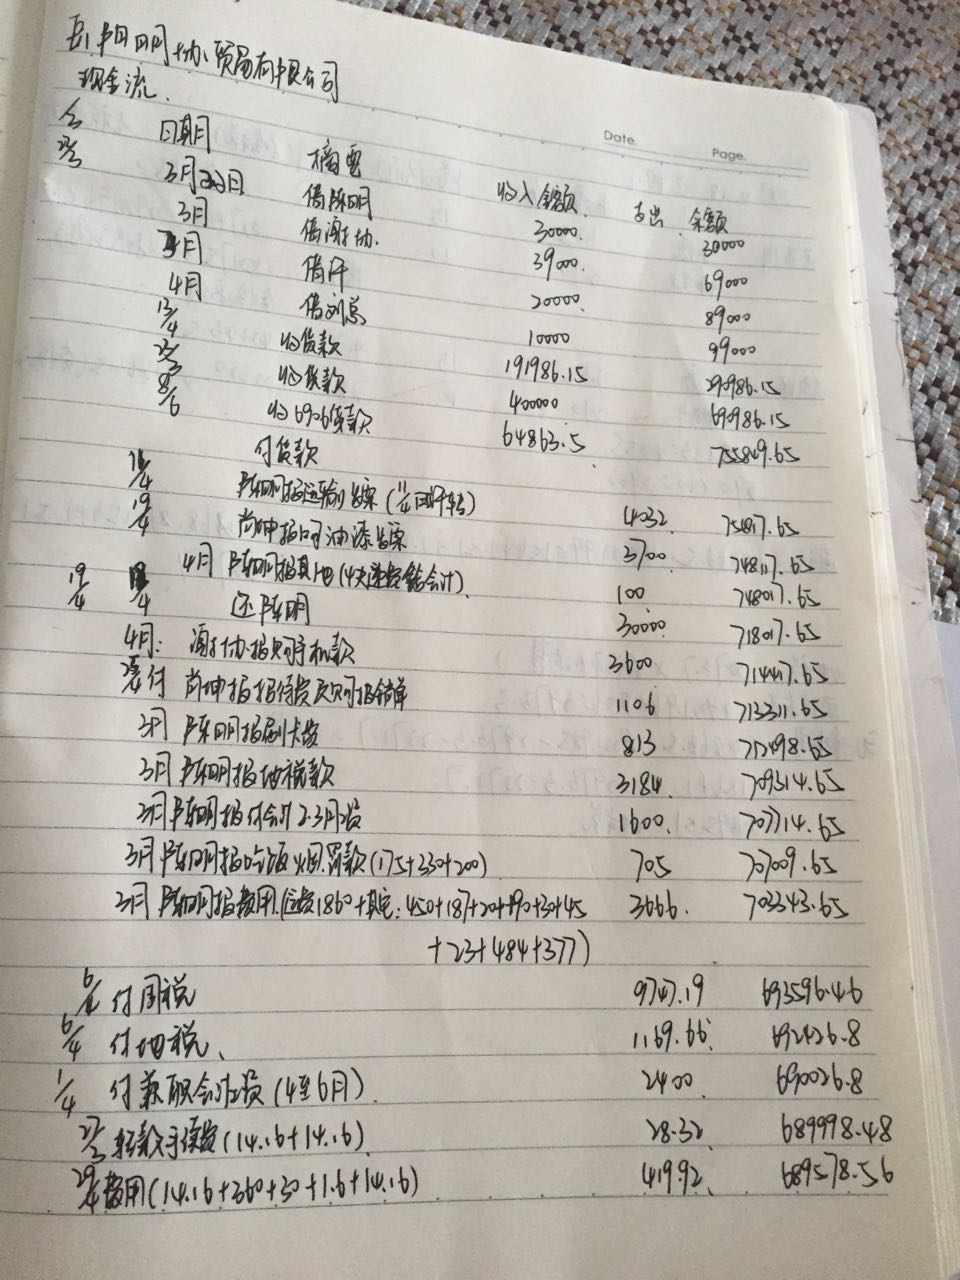 阳明协贸易有限公司
现金流
Date.
Page.
日期 摘要 收入金额 支出 余额
3月23日 借陈明 30000 30000
3月 借谢协 39000 69000
4月 借汗 20000 89000
4月 借刘总 10000 99000
13/4 收货款 191986.15 290986.15
收货款 400000 690986.15
8/6 收6906货款 64863.5 755849.65
付货款
14/4 陈明报运输发票 4032 751817.65
19/4 尚坤报呵油漆发票 3700 748117.65
4月 陈明报其他 100 748017.65
19/4 还陈明 30000 718017.65
4月: 谢协报购手机款 3600 714417.65
付 尚坤报招待费 报销单 1106 713311.65
3月 陈明报刷卡费 813 712498.65
3月 陈明报地税款 3184 709314.65
3月 陈明报付会计2.3月工资 1600 707714.65
3月 陈明报吃饭 烟 罚款(175+330+200) 705 707009.65
3月 陈明报费用 1860+其它:450+187+20+190+30+45 3666 703343.65
+23+484+377)
6/4 付国税 9747.19 693596.46
6/4 付地税 1169.66 692426.8
1/4 付兼职会计工资(4至6月) 2400 690026.8
转款手续费(14.16+14.16) 28.32 689998.48
29/4 费用(14.16+360+30+1.6+14.16) 419.92 689578.56